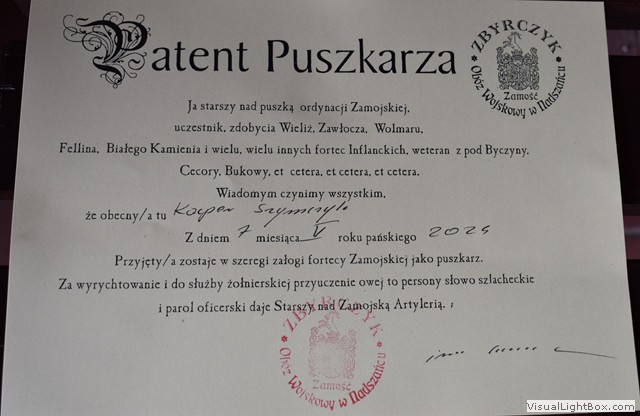 Patent Puszkarza
ZBYRCZYK
Obóz Wojskowy w Nadszańcu
Zamość
Ja starszy nad puszką ordynacji Zamojskiej,
uczestnik, zdobycia Wieliż, Zawłocza, Wolmaru,
Fellina, Białego Kamienia i wielu, wielu innych fortec Inflanckich, weteran z pod Byczyny,
Cecory, Bukowy, et cetera, et cetera, et cetera.
Wiadomym czynimy wszystkim,
że obecny/a tu Kacper
Z dniem 7 miesiąca V roku pańskiego 2025
Przyjęty/a zostaje w szeregi załogi fortecy Zamojskiej jako puszkarz.
Za wyrychtowanie i do służby żołnierskiej przyuczenie owej to persony słowo szlacheckie
i parol oficerski daje Starszy nad Zamojską Artylerią.
ZBYRCZYK
Obóz Wojskowy w Nadszańcu
Zamość
VisualLightBox.com